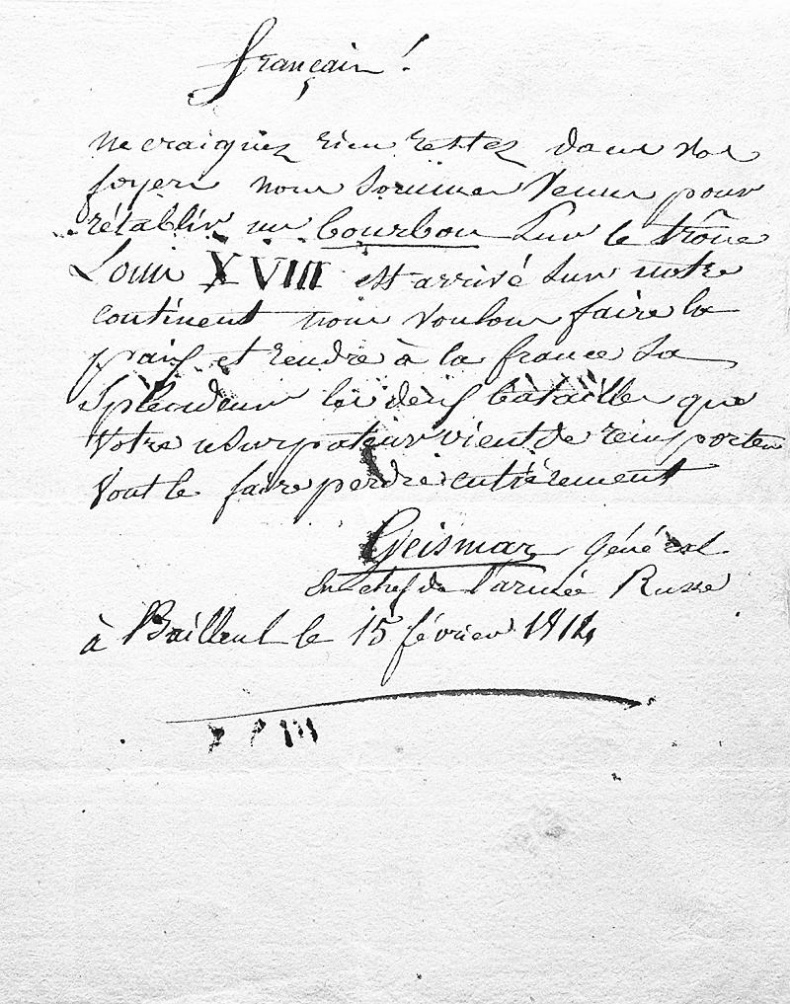 français !
ne craignez rien restez dans vos
foyers nous sommes venus pour
rétablir un bourbon sur le trône
Louis XVIII est arrivé sur notre
continent nous voulons faire la
paix et rendre à la france sa
splendeur les deux batailles que
votre usurpateur vient de remporter
vont le faire perdre entièrement
Geismar général
en chef de l'armée Russe
à Bailleul le 15 février 1814